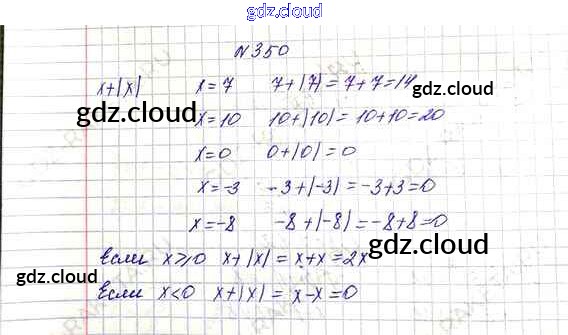 gdz.cloud
gdz.cloud
N 350
x+|x| x=7 7+|7|=7+7=14
gdz.cloud
gdz.cloud
x=10 10+|10|=10+10=20
x=0 0+|0|=0
x=-3 -3+|-3|=-3+3=0
x=-8 -8+|-8|=-8+8=0
gdz.cloud
Если x⩾0 x+|x|=x+x=2x
gdz.cloud
Если x<0 x+|x|=x-x=0
gdz.cloud